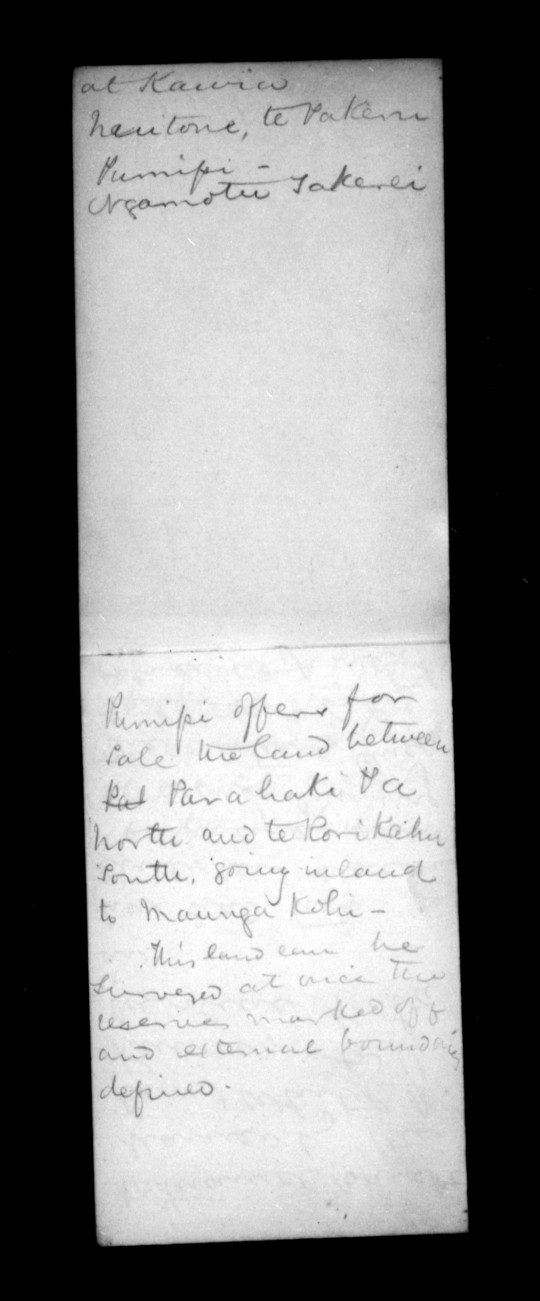 at Kawia
Neutone, te Pakeru
Pumipi -
Ngamotu Takerei
Pumipi offers for
sale the land between
Pal Parahaki Pa
North and te Rorikahu
South, going inland
to Maunga Kohu -
This land can be
surveyed at once the
reserves marked off &
and external boundaries
defined.